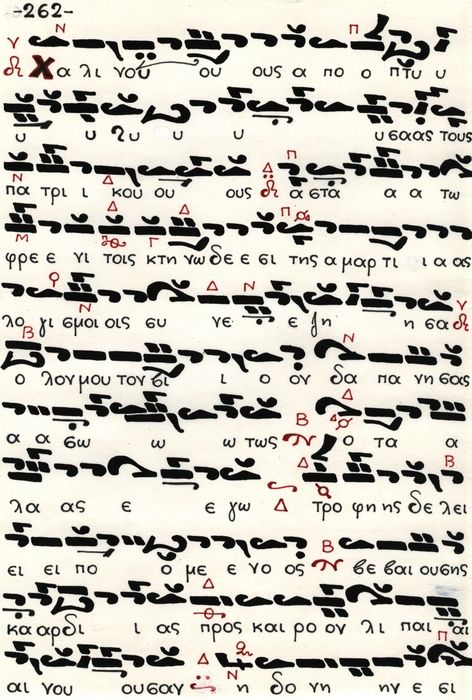 -262-
Χα λι νου ου ους α πο ο πτυ υ
υ υ υ υ υ υσαας τους
πα τρι ι κου ου ους α στα α α τω
φρε ε νι τοις κτη νω δε ε σι της α μαρ τι ι α ας
λο γι σμοι οις συ νε ε ζη η σα
ο λον μου τον βι ι ο ον δα πα νη σας
α α σω ω ω τως ο τα α
λα ας ε ε γω τρο φη ης δε λει
ει ει πο ο με ε νο ος βε βαι ουσης
κα αρδι ι ας προς και ρο ον λι παι αι
αι νου ουσαν η δο νη ην ε σι